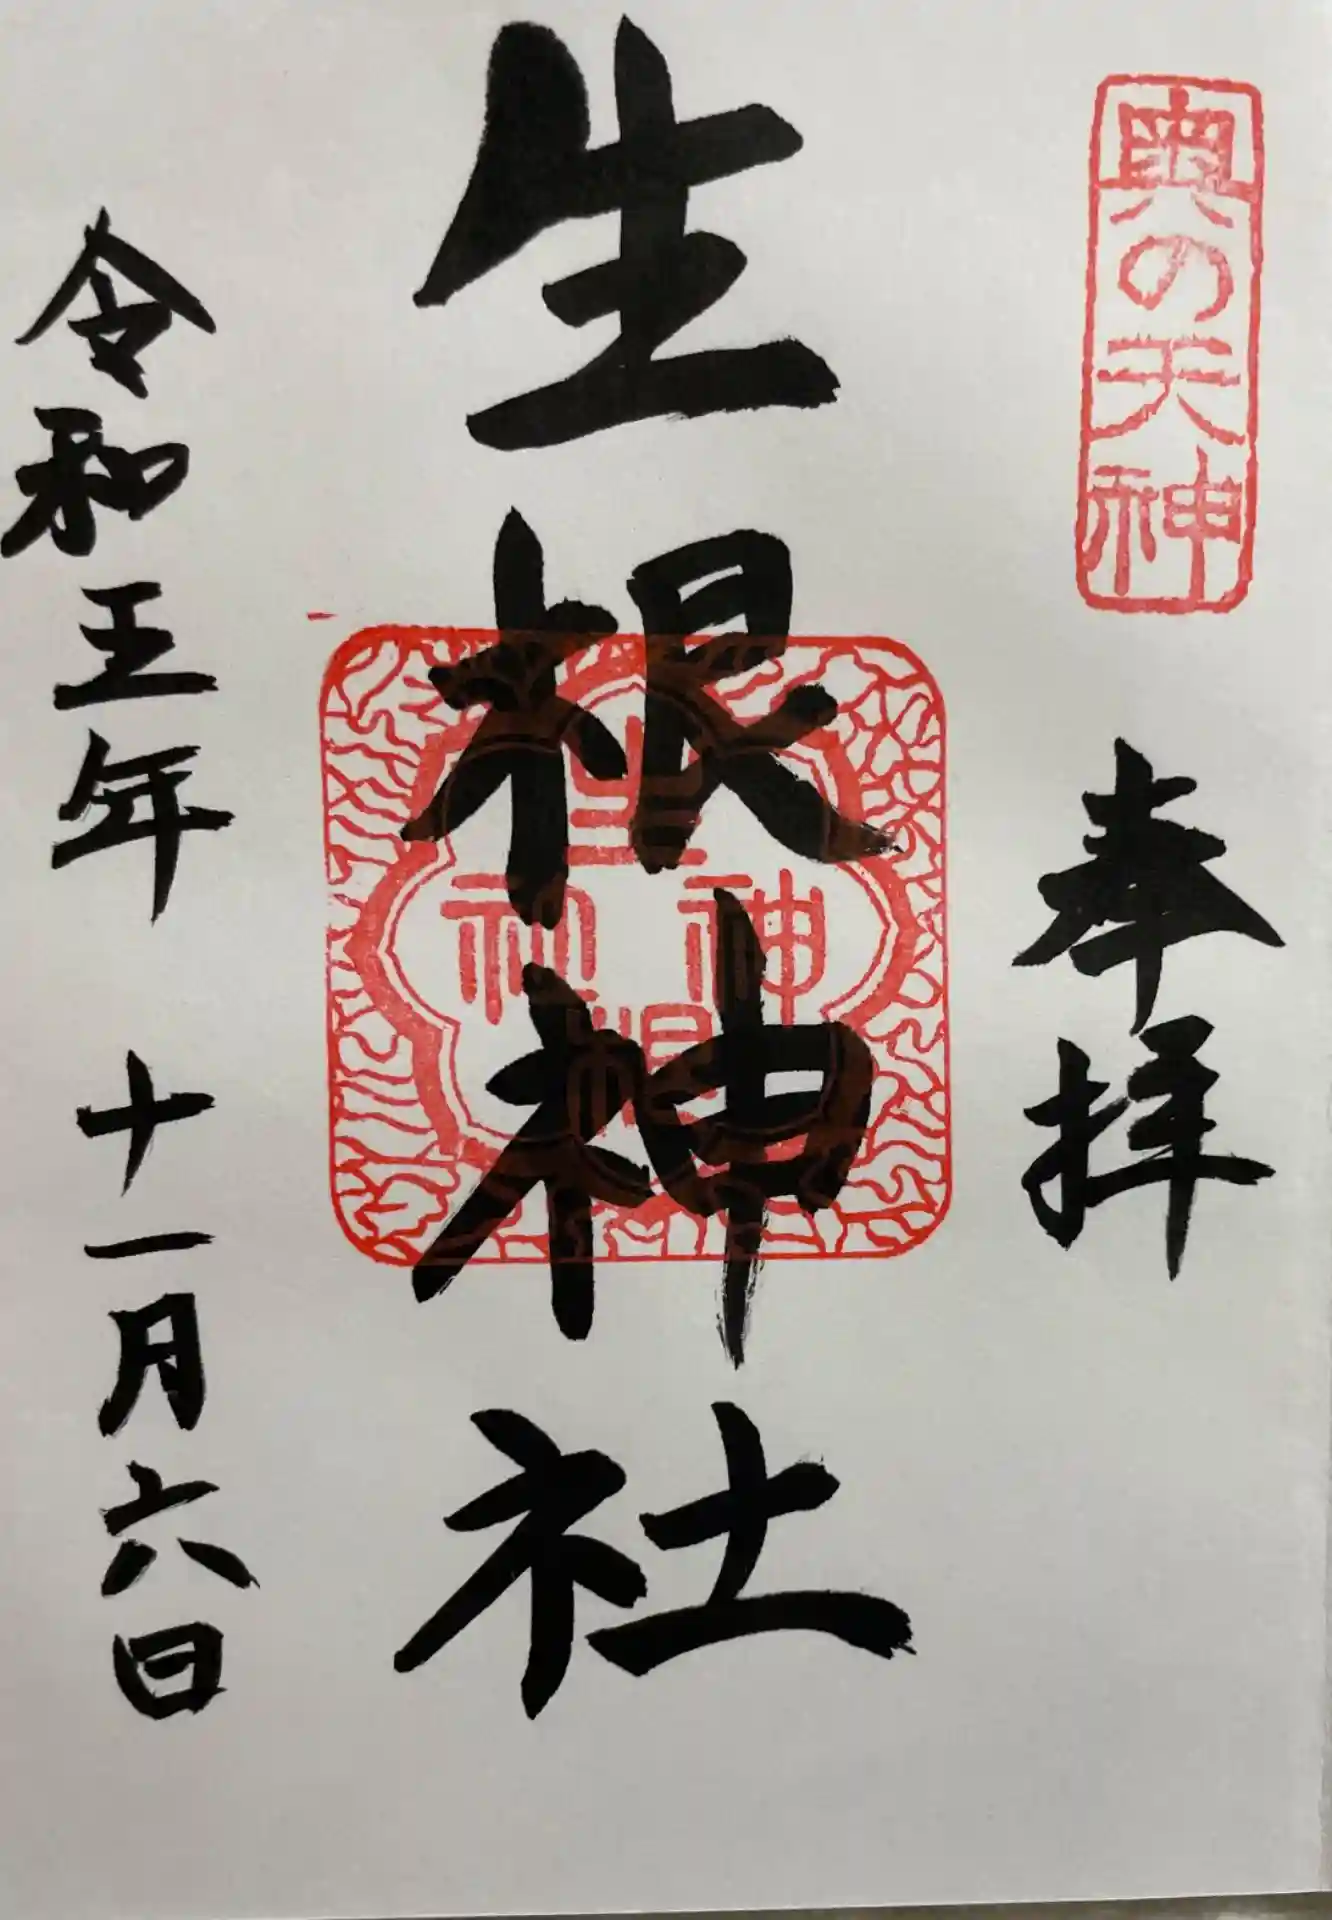 奥の天神
奉拝
生根神社
生根神社
令和五年 十一月六日